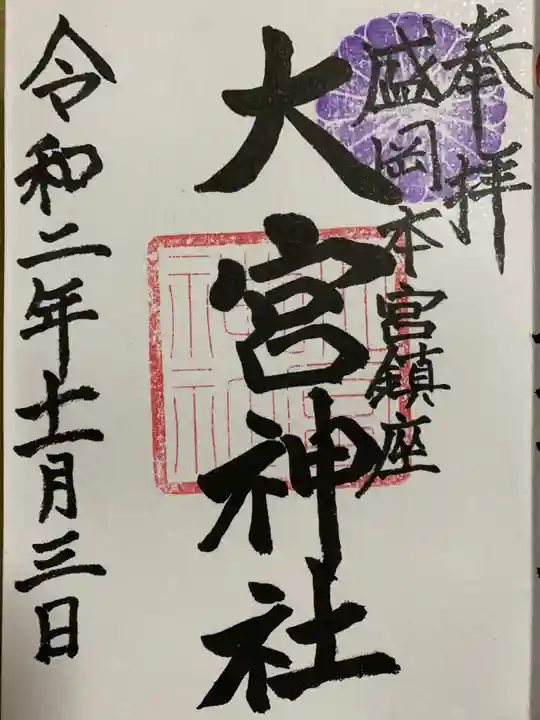 奉拝
盛岡本宮鎮座
大宮神社
令和二年十一月三日